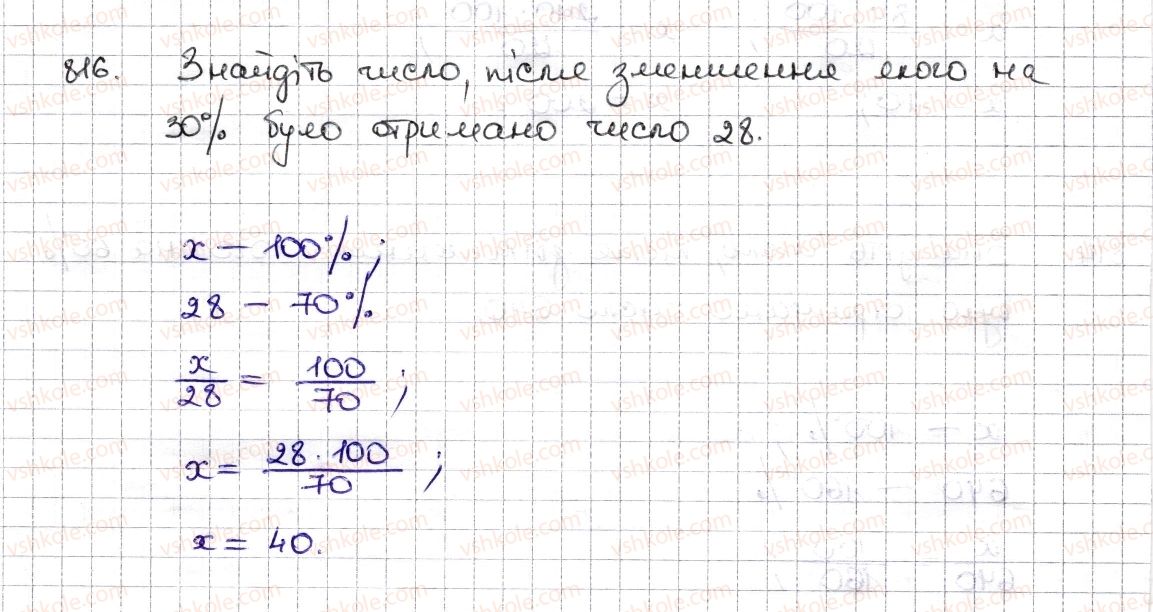 816. Знайдіть число, після зменшення якого на
30% було отримано число 28.
x — 100%;
28 — 70%.
x/28 = 100/70;
x = 28 · 100/70;
x = 40.